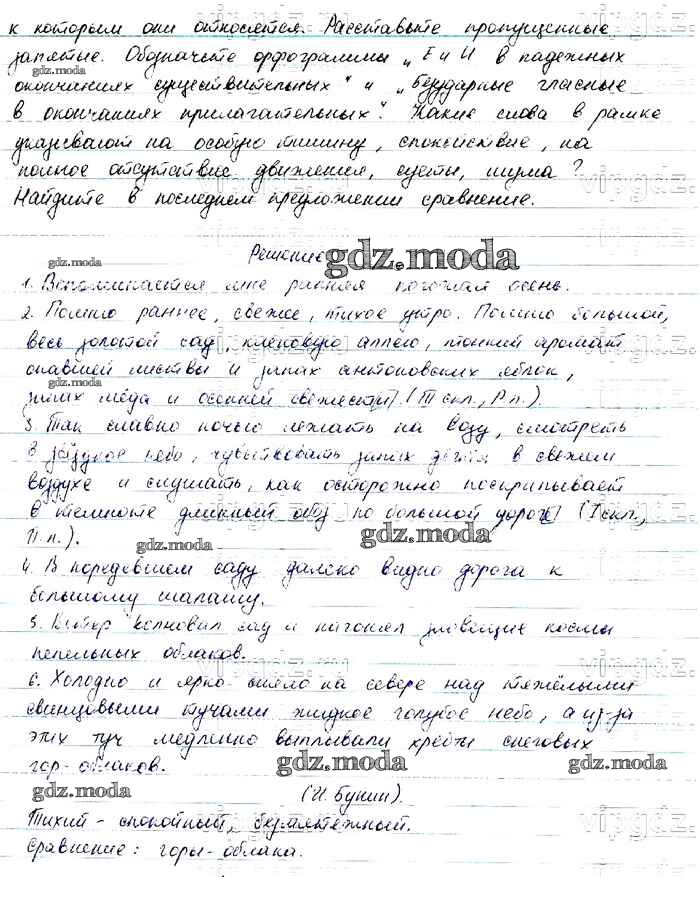 к которым они относятся. Расставьте пропущенные
запятые. Обозначьте орфограммы „Е и И в падежных
gdz.moda
окончаниях существительных“ и „безударные гласные
в окончаниях прилагательных“. Какие слова в рамке
указывают на особую тишину, спокойствие, на
полное отсутствие движения, суеты, шума?
Найдите в последнем предложении сравнение.
Решение
gdz.moda
1. Вспоминается мне ранняя погожая осень.
2. Помню раннее, свежее, тихое утро. Помню большой,
весь золотой сад, кленовую аллею, тонкий аромат
опавшей листвы и запах антоновских яблок,
gdz.moda
запах мёда и осенней свежести. (III скл., Р.п.).
3. Так славно ночью лежать на возу, смотреть
в звёздное небо, чувствовать запах дёгтя в свежем
воздухе и слушать, как осторожно поскрипывает
в темноте длинный обоз по большой дороге (I скл.,
П.п.).
gdz.moda gdz.moda
4. В поредевшем саду далеко видна дорога к
большому шалашу.
5. Ветер волновал сад и нагонял зловещие космы
gdz.moda
пепельных облаков.
6. Холодно и ярко сияло на севере над тяжёлыми
свинцовыми тучами жидкое голубое небо, а из-за
этих туч медленно выплывали хребты снеговых
гор-облаков.
gdz.moda gdz.moda
gdz.moda
(И. Бунин).
Тихий - спокойный, безмятежный.
gdz.moda
Сравнение: горы-облака.